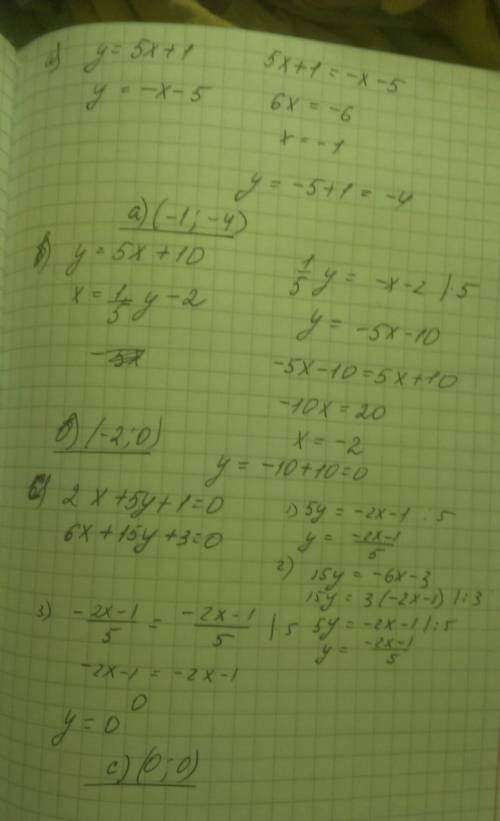 а) y = 5x + 1
y = -x - 5
5x + 1 = -x - 5
6x = -6
x = -1
y = -5 + 1 = -4
а) (-1; -4)
б) y = 5x + 10
x = 1/5 y - 2
1/5 y = -x - 2 | 5
y = -5x - 10
-5x - 10 = 5x + 10
-10x = 20
x = -2
y = -10 + 10 = 0
б) (-2; 0)
с) 2x + 5y + 1 = 0
6x + 15y + 3 = 0
1) 5y = -2x - 1 : 5
y = -2x-1/5
2) 15y = -6x - 3
15y = 3(-2x-1) | : 3
5y = -2x - 1 | : 5
y = -2x-1/5
3) -2x-1/5 = -2x-1/5 | 5
-2x - 1 = -2x - 1
0
y = 0
с) (0; 0)